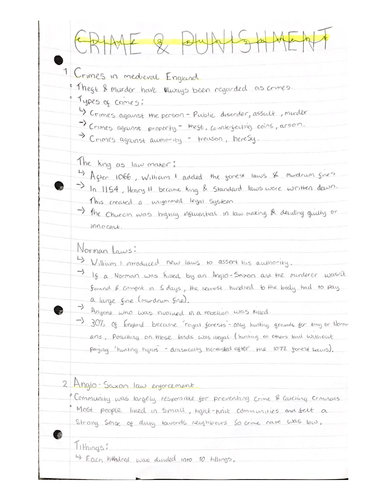 CRIME & PUNISHMENT
1 Crimes in medieval England
• Theft & Murder have always been regarded as crimes
• Types of crimes:
↳ Crimes against the person - Public disorder, assult, murder
↳ Crimes against property - theft, counterfeiting coins, arson.
↳ Crimes against authority - treason, heresy.
The King as law maker:
↳ After 1066, William I added the forest laws & murdrum fines
↳ In 1154, Henry II became King & Standard laws were written down.
This created a uniformed legal system
↳ The Church was highly influential in law making & deciding guilty or
innocent.
Norman laws:
↳ William I introduced new laws to assert his authority.
↳ If a Norman was killed by an Anglo-Saxon and the murderer wasn't
found & in 5 days, the hundred to the body had to pay
a large fine (murdrum fine).
↳ Anyone who was involved in a rebellion was killed
↳ 30% of England became 'royal forests' - only hunting grounds for King or Norm
ans. Poaching on these lands was illegal (hunting on lands without
paying 'hunting rights' - dramatically increased after the 1072 forest laws).
2 Anglo-Saxon law enforcement
• Community was largely responsible for preventing crime & catching criminals
• Most people lived in small, tight-knit communities and felt a
strong sense of duty towards neighbours so crime rate was low.
Tithings:
↳ Each hundred was divided into 10 tithings.